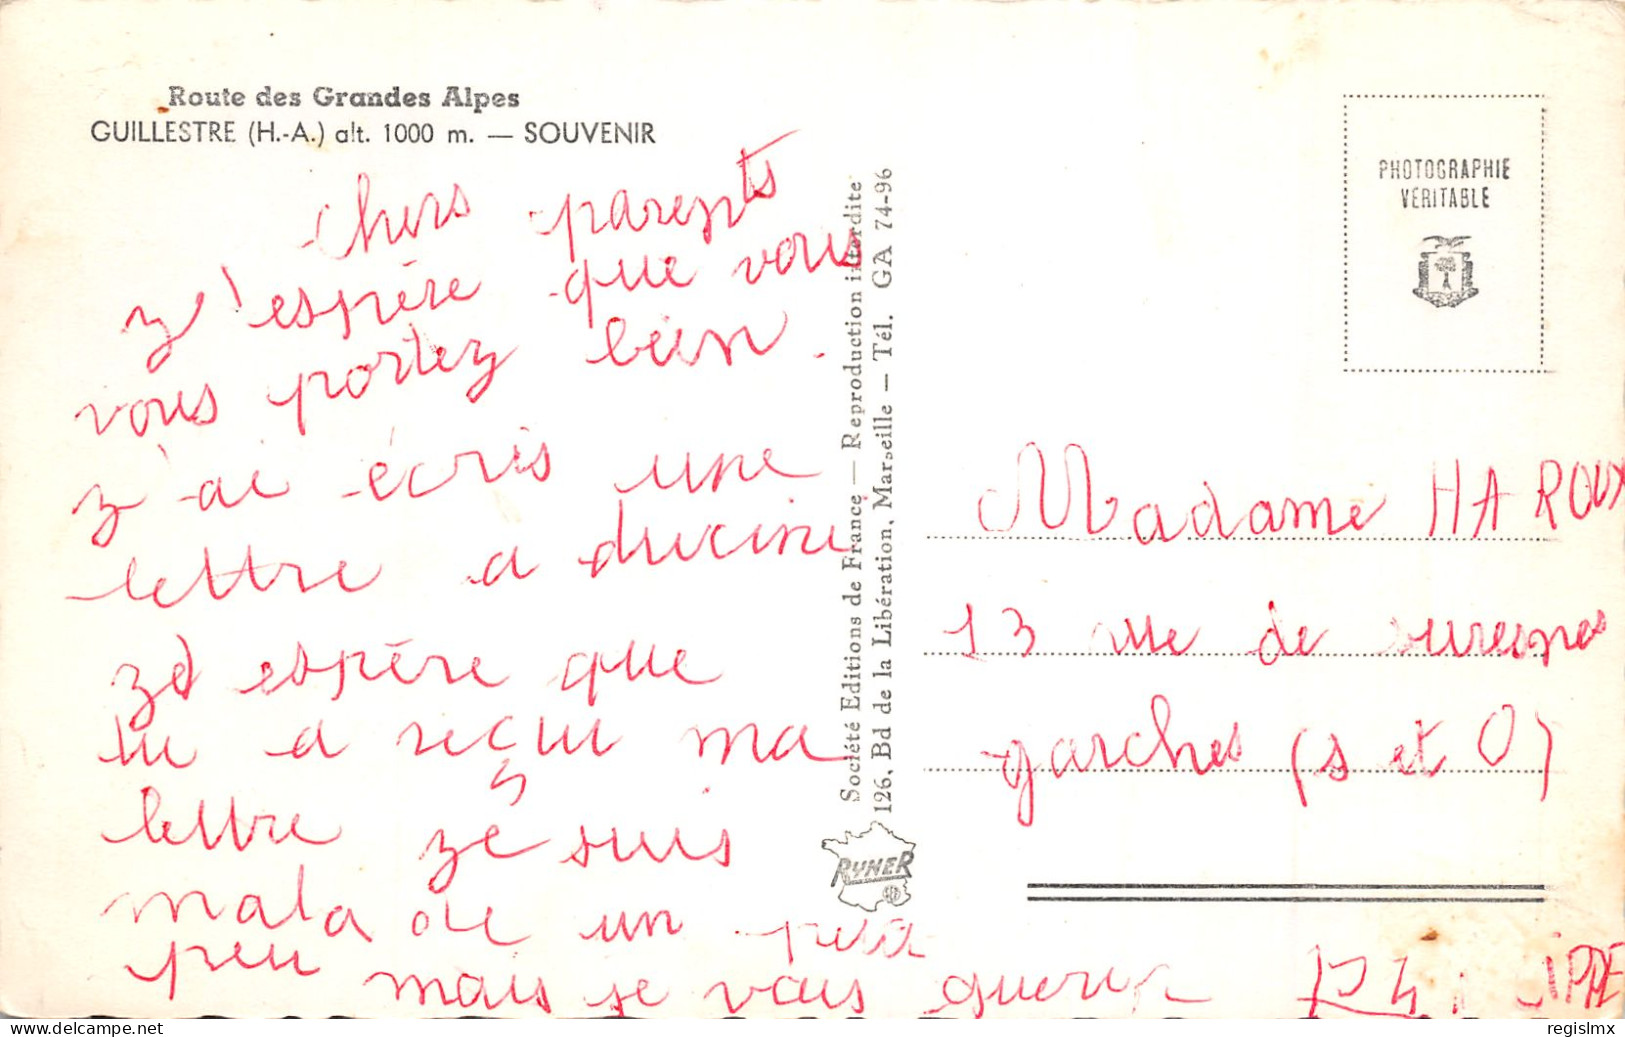 Route des Grandes Alpes
GUILLESTRE (H.-A.) alt. 1000 m. — SOUVENIR
chers parents
z'espère que vous
vous portez bien.
z'ai écris une
lettre a
ze espère que
tu a reçui ma
lettre ze suis
malade un petit
peu mais je vais guerir
Société Editions de France — Reproduction interdite
126, Bd de la Libération, Marseille — Tél. GA 74-96
RYNER
PHOTOGRAPHIE
VÉRITABLE
Madame HAROUX
13 rue de suresnes
garches (s et O)
regislmx